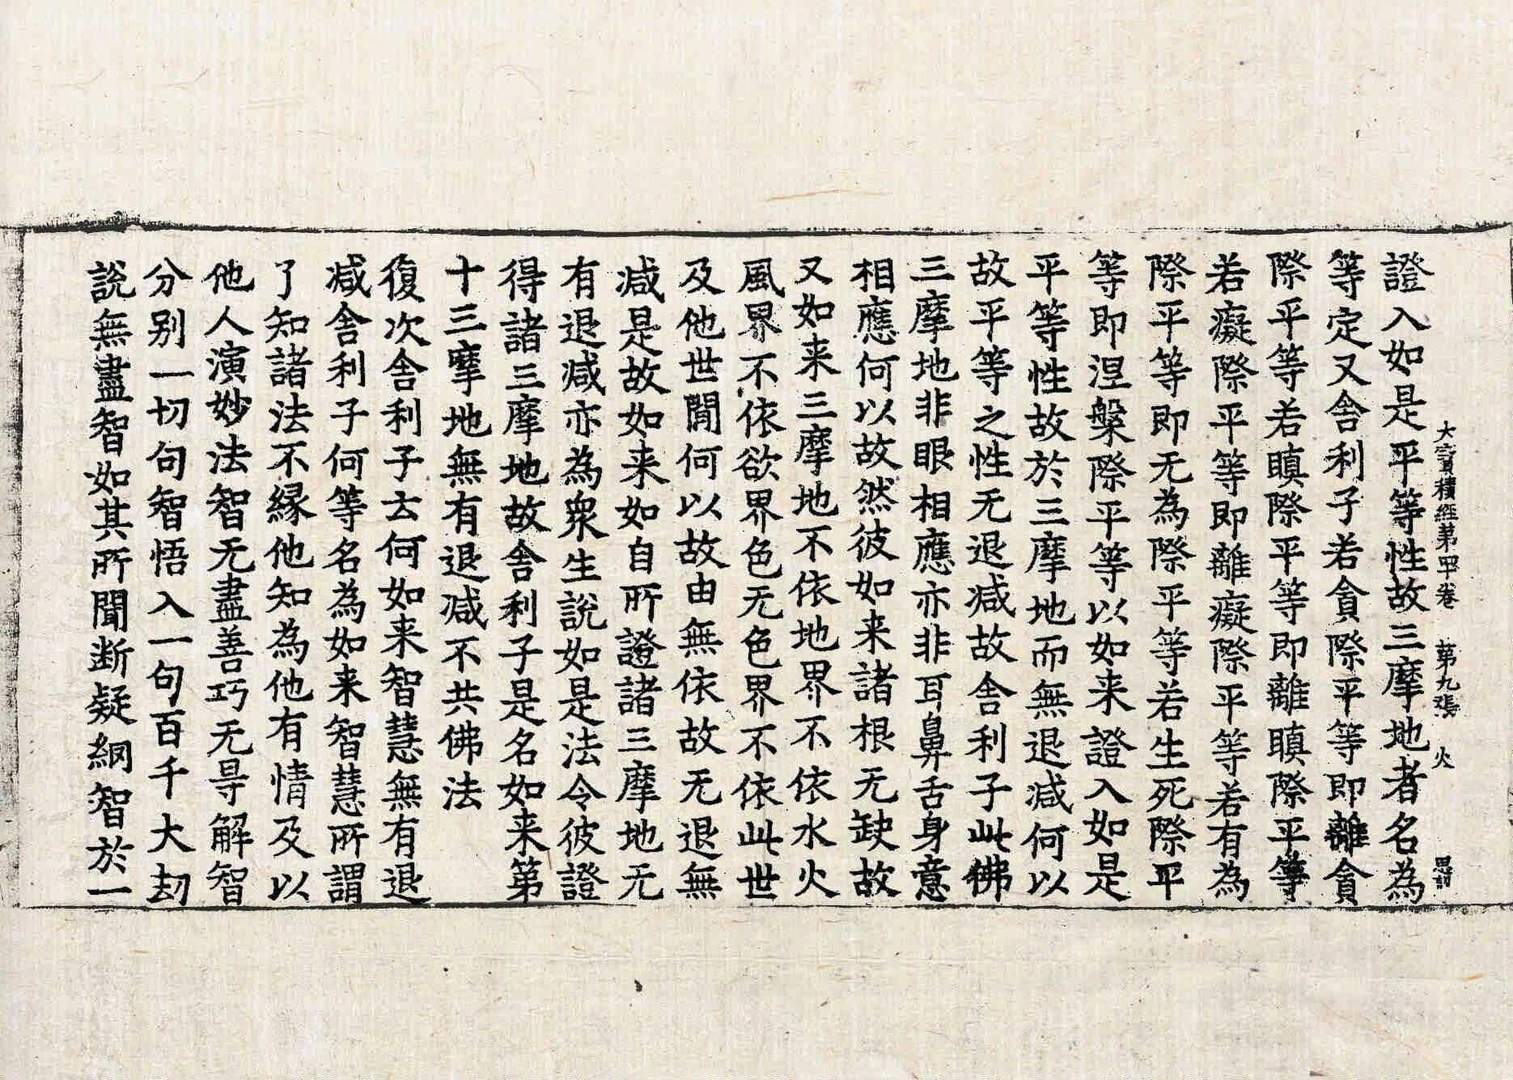 大寶積経第卌卷 第九張 火
證入如是平等性故三摩地者名為
等定又舍利子若貪際平等即離貪
際平等若瞋際平等即離瞋際平等
若癡際平等即離癡際平等若有為
際平等即无為際平等若生死際平
等即涅槃際平等以如来證入如是
平等性故於三摩地而無退减何以
故平等之性无退减故舍利子此佛
三摩地非眼相應亦非耳鼻舌身意
相應何以故然彼如来諸根无缺故
又如来三摩地不依地界不依水火
風界不依欲界色无色界不依此世
及他世間何以故由無依故无退無
减是故如来如自所證諸三摩地无
有退减亦為衆生說如是法令彼證
得諸三摩地故舍利子是名如来第
十三摩地無有退减不共佛法
復次舍利子云何如来智慧無有退
减舍利子何等名為如来智慧所謂
了知諸法不縁他知為他有情及以
他人演妙法智无盡善巧无㝵解智
分别一切句智悟入一句百千大劫
說無盡智如其所聞断疑網智於一